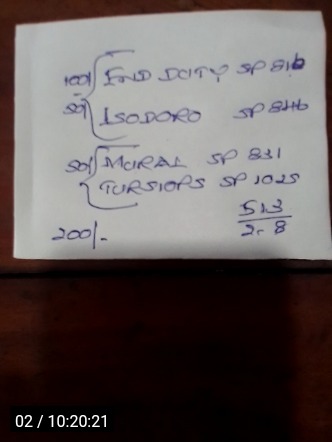 100/ FIND DCITY SP 816
50/ ISODORO SP 846
50/ MURAL SP 831
TURSIOPS SP 1025
513
2.8
200/-
02 / 10:20:21